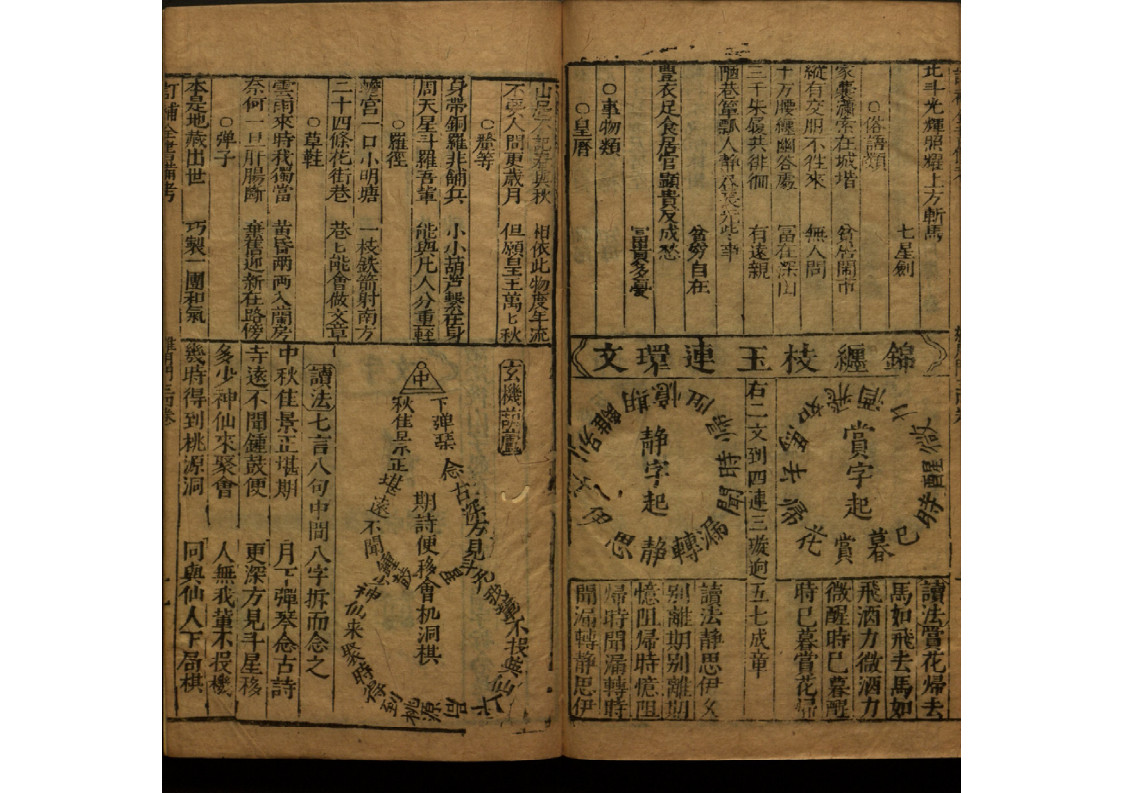 北斗光輝照耀上方斬馬
七星劍
○俗語類
家業蕭索在城堦
貧居閙市
縱有交朋不徃來
無人問
十万腰纏幽谷處
富在深山
三千朱履共徘徊
有遠親
陋巷簞瓢人静
此事
貧窮自在
豐衣足食居官顯貴反成愁
富貴多憂
○事物類
○皇曆
錦纏枝玉連環文
賞字起
賞花歸
馬如飛
酒力微醒時已暮
右二文到四連三璇逈五七成章
静字起
静思伊
離別期憶阻歸時聞漏轉
讀法賞花帰去
馬如飛去馬如
飛酒力微酒力
微醒時巳暮醒
時巳暮賞花歸
讀法静思伊久
別離期別離期
憶阻帰時憶阻
帰時聞漏轉時
聞漏轉静思伊
不
人間更歲月
相依此物度年流
但願皇王萬匕秋
○䓁等
身帶銅羅非舖兵
小小葫芦繫在身
周天星斗羅吾輩
能與凡人分重輕
○羅徑
蟾宮一口小明塘
一枝鉄箭射南方
二十四條花街巷
巷匕能會做文章
○草鞋
雲雨來時我獨當
黄昏兩兩入蘭房
奈何一旦肝腸斷
棄舊迎新在路傍
○彈子
本是地藏出世
巧製一團和氣
玄機
中
秋佳景正堪
下彈琴
念古深方見斗
期詩便移會机洞棋
遠不聞鍾鼓
來聚時得到桃源
不投
與仙
讀法七言八句中間八字拆而念之
中秋佳景正堪期
月下彈琴念古詩
寺遠不聞鍾鼓便
更深方見斗星移
多少神仙來聚會
人無我輩不投機
幾時得到桃源洞
同與仙人下局棋
訂補全書備考